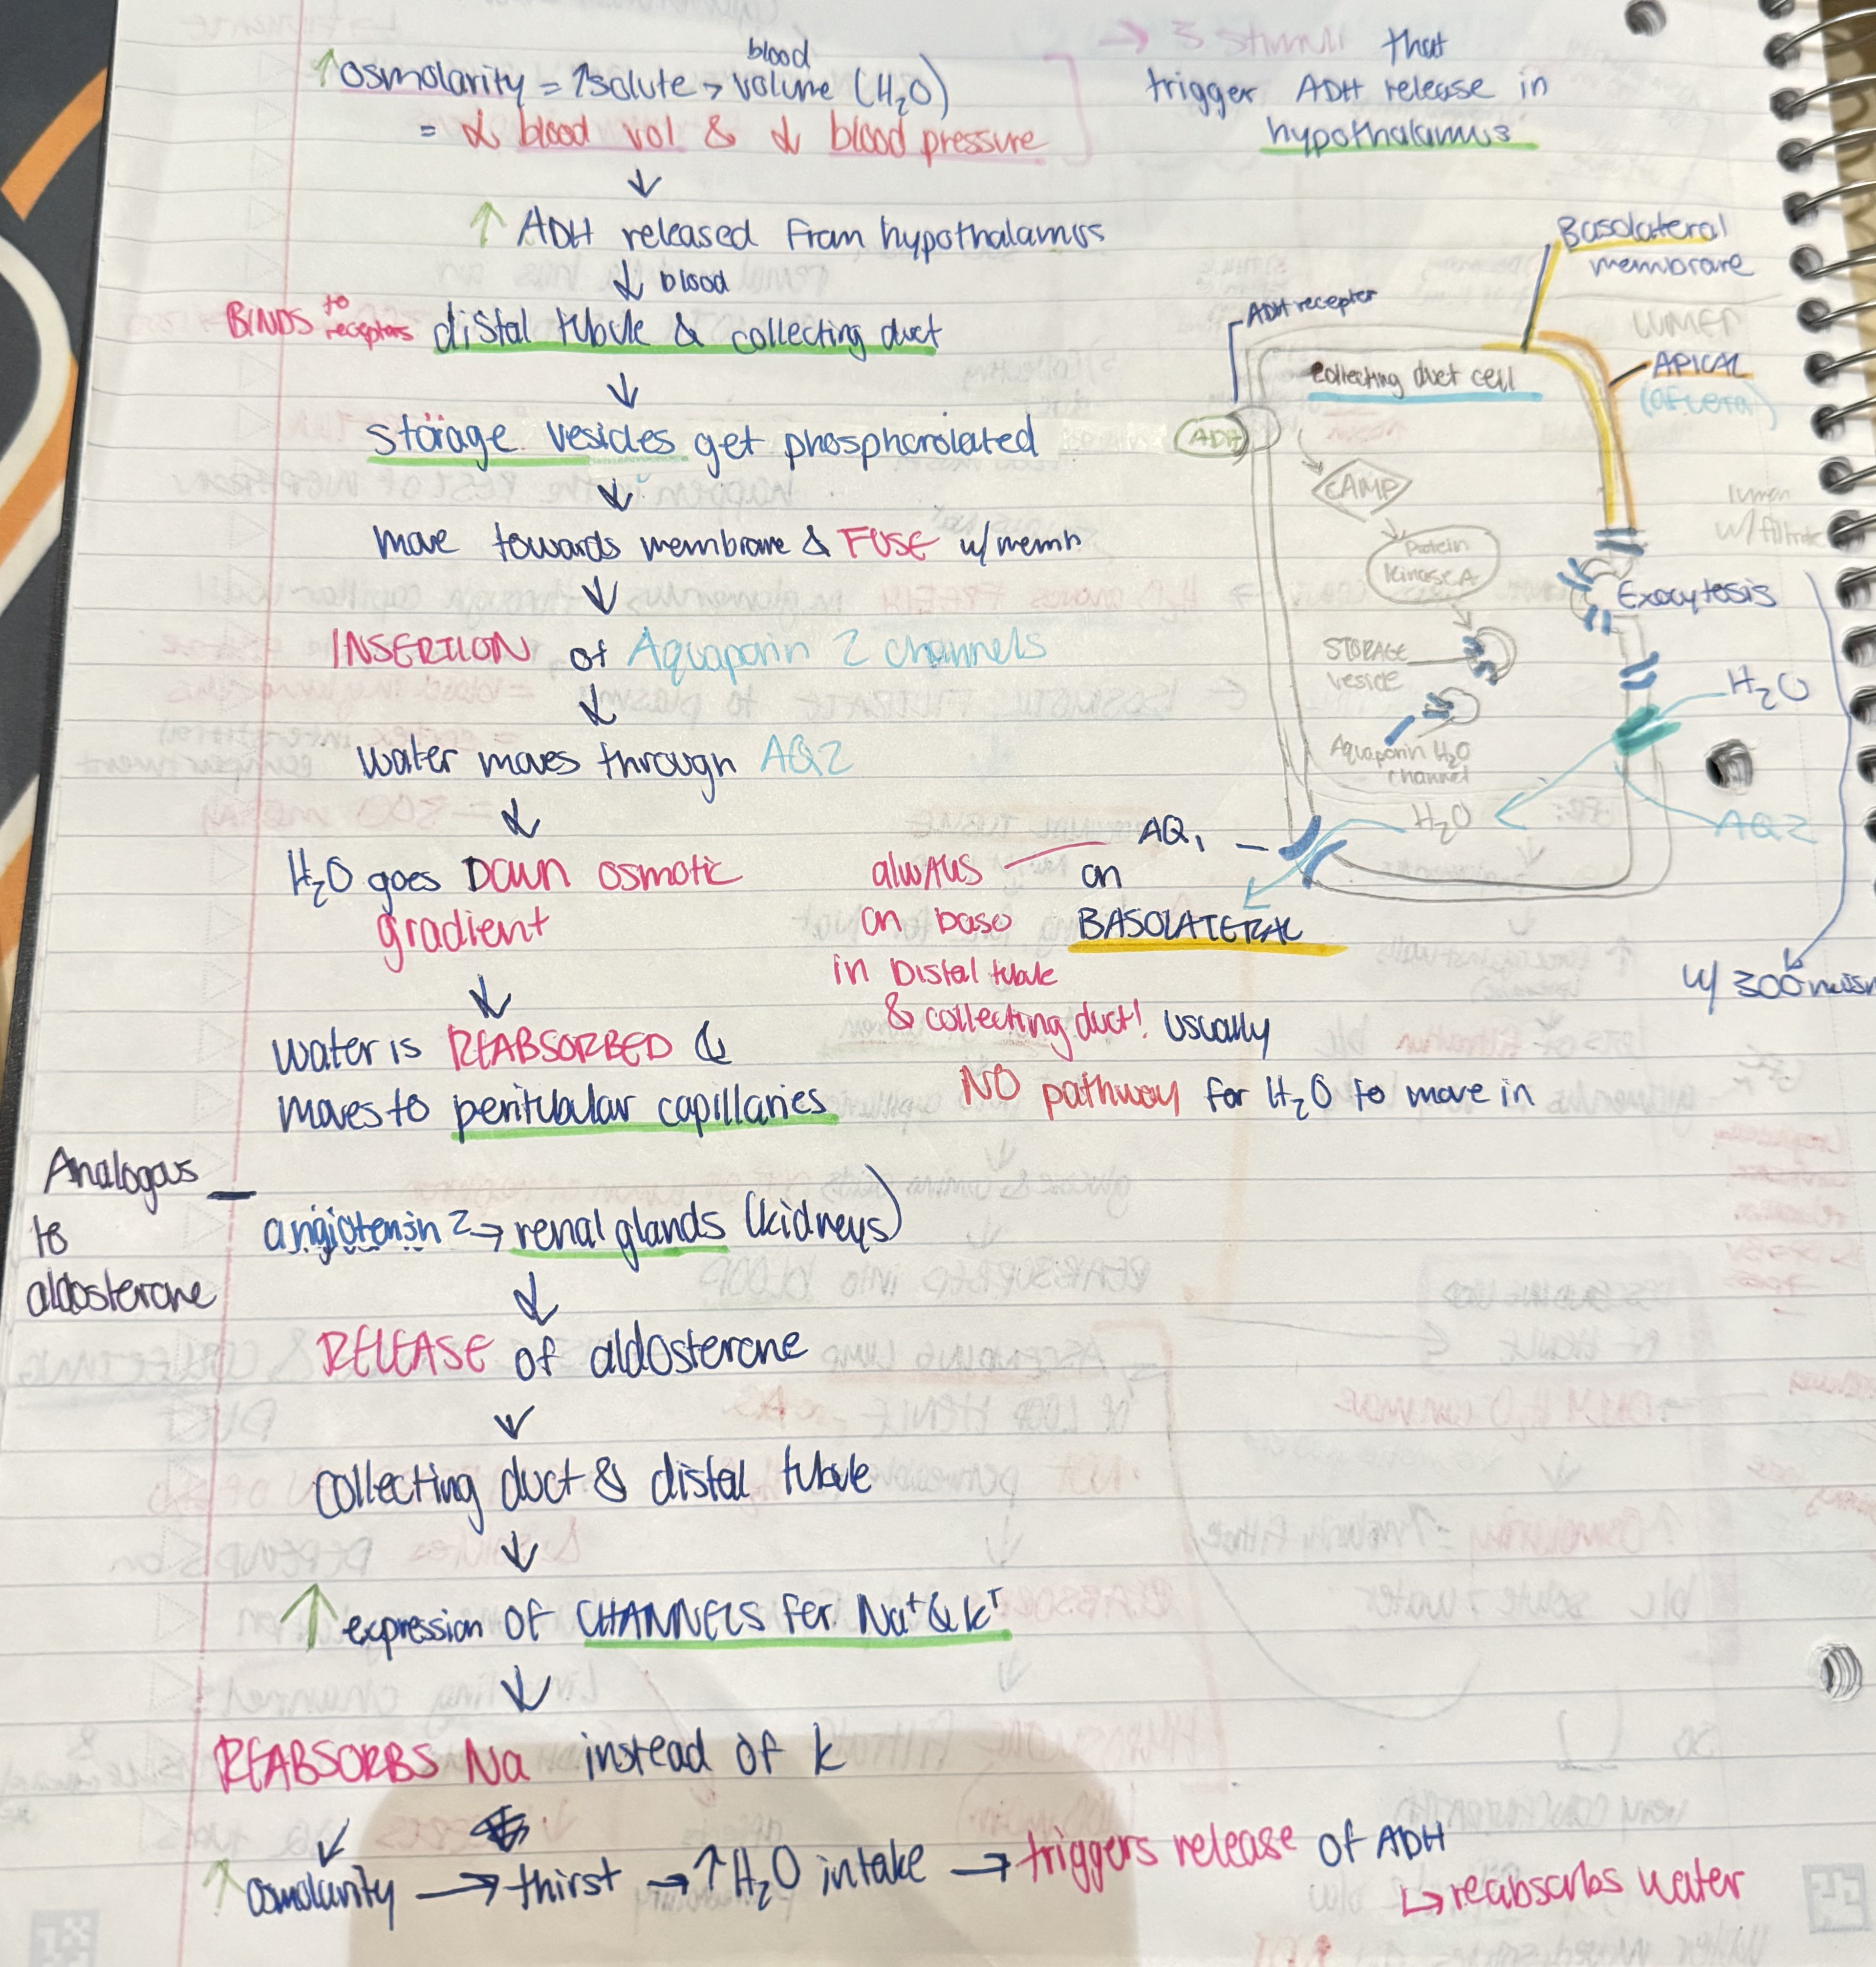 ↑osmolarity = ↑solute > blood volume (H₂O)
= ↓ blood vol & ↓ blood pressure
→ 3 stimuli that
trigger ADH release in
hypothalamus
↓
↑ ADH released from hypothalamus
↓ blood
BINDS to receptors distal tubule & collecting duct
↓
storage vesicles get phosphorolated
↓
move towards membrane & FUSE w/ memb
↓
INSERTION of Aquaporin 2 channels
↓
water moves through AQ2
↓
H₂O goes DOWN osmotic
gradient
↓
water is REABSORBED &
moves to peritubular capillaries
Basolateral
membrane
ADH receptor
LUMEN
APICAL
collecting duct cell
ADH
cAMP
Protein
Kinase A
lumen
w/ filtrate
Exocytosis
STORAGE
vesicle
H₂O
Aquaporin H₂O
channel
H₂O
AQ2
AQ₁ —
always on
on baso BASOLATERAL
in Distal tubule
& collecting duct! usually
NO pathway for H₂O to move in
w/ 300 mosm
Analogous
to
aldosterone
— angiotensin 2 → renal glands (kidneys)
↓
RELEASE of aldosterone
↓
collecting duct & distal tubule
↓
↑ expression of CHANNELS for Na⁺ & K⁺
↓
REABSORBS Na instead of K
↙
↑ osmolarity → thirst → ↑H₂O intake → triggers release of ADH
↳ reabsorbs water